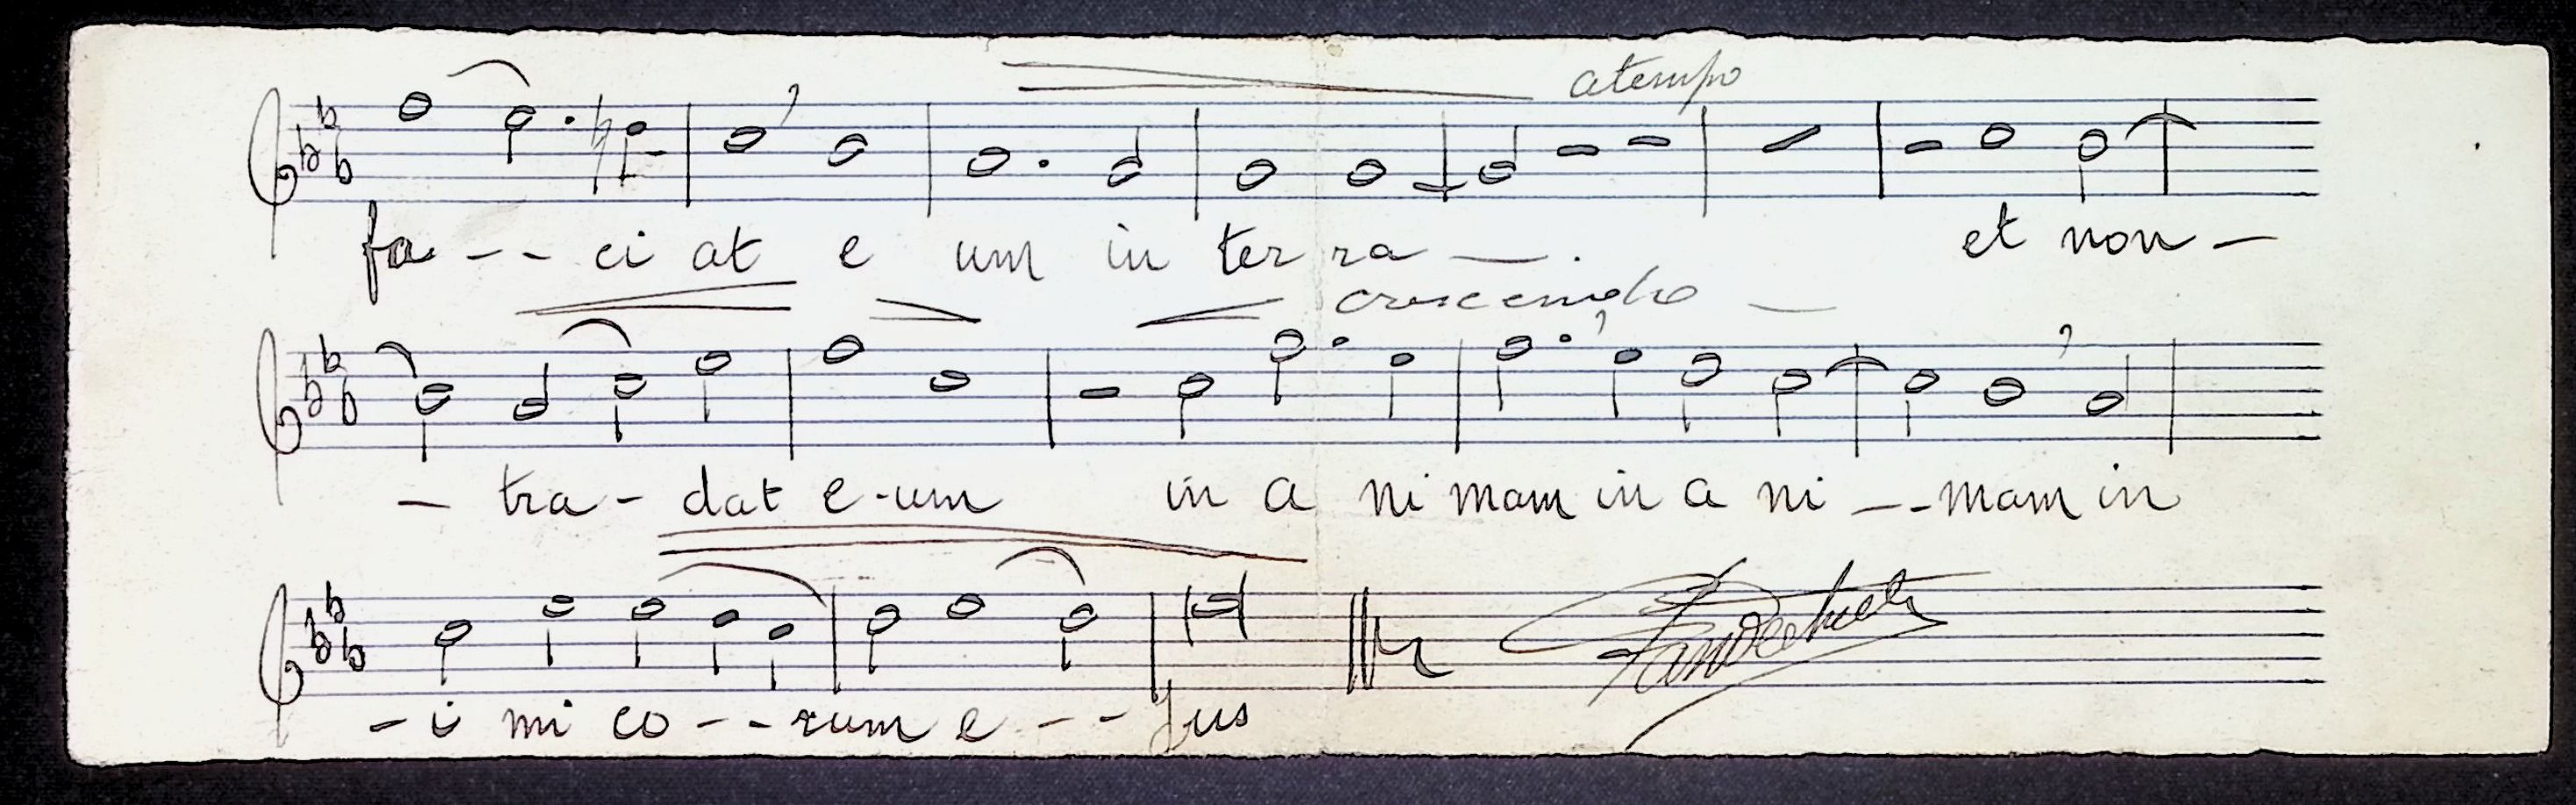 a tempo
fa - - ci at e um in ter ra — . et non —
crescendo —
— tra - dat e - um in a ni mam in a ni - - mam in
- i mi co - - rum e - - jus